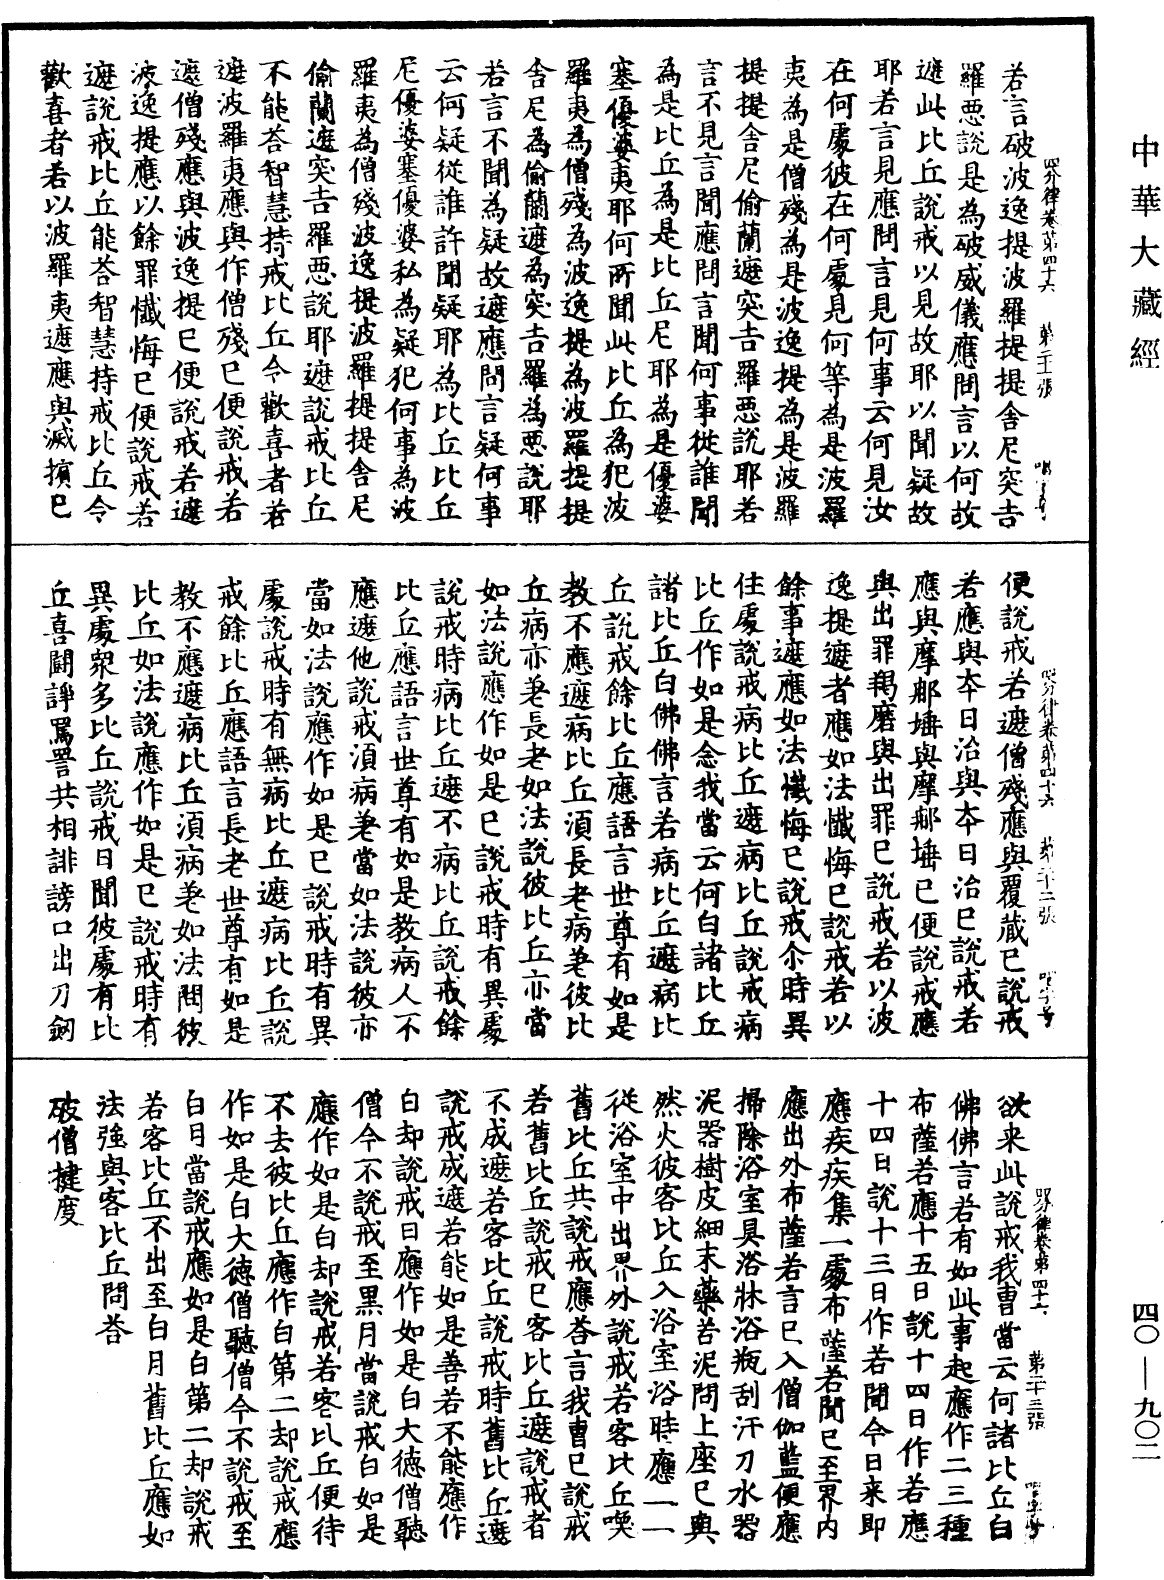 中華大藏經
若言破波逸提波羅提提舍尼突吉
四分律卷第四十六 第二十一張
羅惡說是為破威儀應問言以何故
遮此比丘說戒以見故耶以聞疑故
耶若言見應問言見何事云何見汝
在何處彼在何處見何等為是波羅
夷為是僧殘為是波逸提為是波羅
提提舍尼偷蘭遮突吉羅惡說耶若
言不見言聞應問言聞何事從誰聞
為是比丘為是比丘尼耶為是優婆
塞優婆夷耶何所聞此比丘為犯波
羅夷為僧殘為波逸提為波羅提提
舍尼為偷蘭遮為突吉羅為惡說耶
若言不聞為疑故遮應問言疑何事
云何疑從誰許聞疑耶為比丘比丘
尼優婆塞優婆私為疑犯何事為波
羅夷為僧殘波逸提波羅提提舍尼
偷蘭遮突吉羅惡說耶遮說戒比丘
不能答智慧持戒比丘令歡喜者若
遮波羅夷應與作僧殘已便說戒若
遮僧殘應與波逸提已便說戒若遮
波逸提應以餘罪懺悔已便說戒若
遮說戒比丘能答智慧持戒比丘令
歡喜者若以波羅夷遮應與滅擯已
便說戒若遮僧殘應與覆藏已說戒
四分律卷第四十六 第二十二張
若應與本日治與本日治已說戒若
應與摩那埵與摩那埵已便說戒應
與出罪羯磨與出罪已說戒若以波
逸提遮者應如法懺悔已說戒若以
餘事遮應如法懺悔已說戒尒時異
住處說戒病比丘遮病比丘說戒病
比丘作如是念我當云何白諸比丘
諸比丘白佛佛言若病比丘遮病比
丘說戒餘比丘應語言世尊有如是
教不應遮病比丘須長老病差彼比
丘病亦差長老如法說彼比丘亦當
如法說應作如是已說戒時有異處
說戒時病比丘遮不病比丘說戒餘
比丘應語言世尊有如是教病人不
應遮他說戒須病差當如法說彼亦
當如法說應作如是已說戒時有異
處說戒時有無病比丘遮病比丘說
戒餘比丘應語言長老世尊有如是
教不應遮病比丘須病差如法問彼
比丘如法說應作如是已說戒時有
異處衆多比丘說戒日聞彼處有比
丘喜鬪諍罵詈共相誹謗口出刀劒
欲来此說戒我曹當云何諸比丘白
四分律卷第四十六 第二十三張
佛佛言若有如此事起應作二三種
布薩若應十五日說十四日作若應
十四日說十三日作若聞今日来即
應疾疾集一處布薩若聞已至界内
應出外布薩若言已入僧伽藍便應
掃除浴室具浴牀浴瓶刮汗刀水器
泥器樹皮細末藥若泥問上座已與
然火彼客比丘入浴室浴時應一一
從浴室中出界外說戒若客比丘喚
舊比丘共說戒應荅言我曹已說戒
若舊比丘說戒已客比丘遮說戒者
不成遮若客比丘說戒時舊比丘遮
說戒成遮若能如是善若不能應作
白却說戒日應作如是白大德僧聽
僧今不說戒至黑月當說戒白如是
應作如是白却說戒若客比丘便待
不去彼比丘應作白第二却說戒應
作如是白大德僧聽僧今不說戒至
白月當說戒應如是白第二却說戒
若客比丘不出至白月舊比丘應如
法強與客比丘問荅
破僧揵度
四〇—九〇二